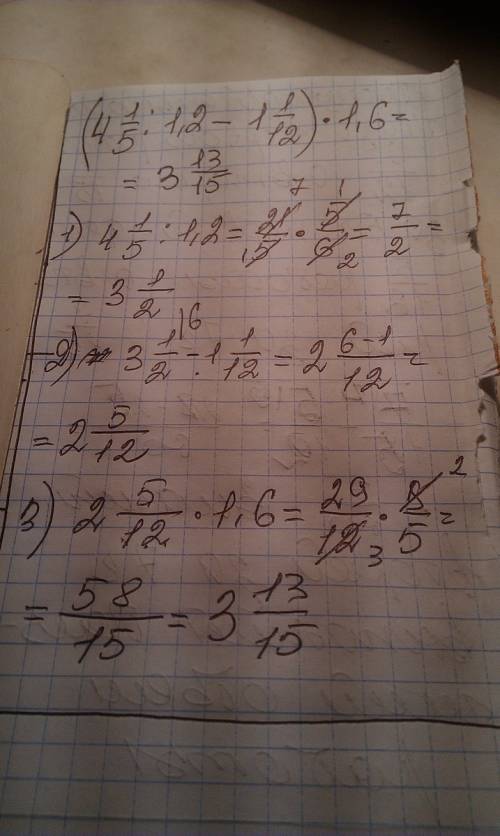 (4 1/5 : 1,2 - 1 1/12) · 1,6 =
= 3 13/15
1) 4 1/5 : 1,2 = 21/5 · 5/6 = 7/2 =
= 3 1/2
2) 3 1/2 - 1 1/12 = 2 6-1/12 =
= 2 5/12
3) 2 5/12 · 1,6 = 29/12 · 8/5 =
= 58/15 = 3 13/15